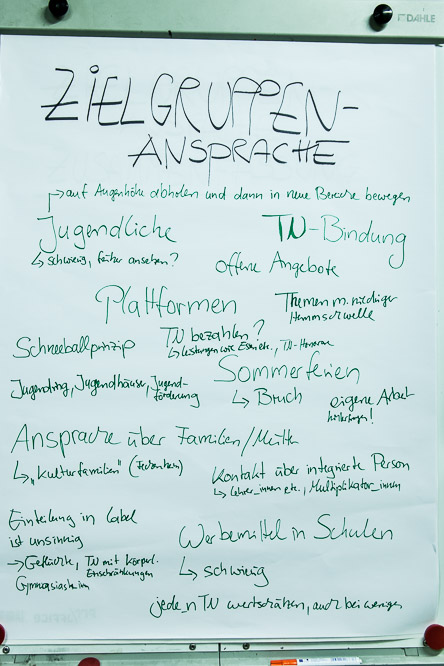 DAHLE
ZIELGRUPPEN-
ANSPRACHE
auf Augenhöhe abholen und dann in neue Bereiche bewegen
Jugendliche
↳ schwierig, früher ansetzen?
TN-Bindung
offene Angebote
Plattformen
Themen m. niedriger
Hemmschwelle
Schneeballprinzip
TN bezahlen?
↳ Leistungen wie Essen etc., TN-Honorar
Sommerferien
↳ Bruch
Jugendring, Jugendhäuser, Jugend-
förderung
eigene Arbeit
hinterfragen!
Ansprache über Familien/Mütter
↳ "Kulturfamilien" (
Kontakt über integrierte Person
↳ Lehrer_innen etc., Multiplikator_innen
Einteilung in Label
ist unsinnig
→ Geflüchte, TN mit körperl.
Einschränkungen
Gymnasiast_in
Werbemittel in Schulen
↳ schwierig
jede_n TN wertschätzen, auch bei wenigen